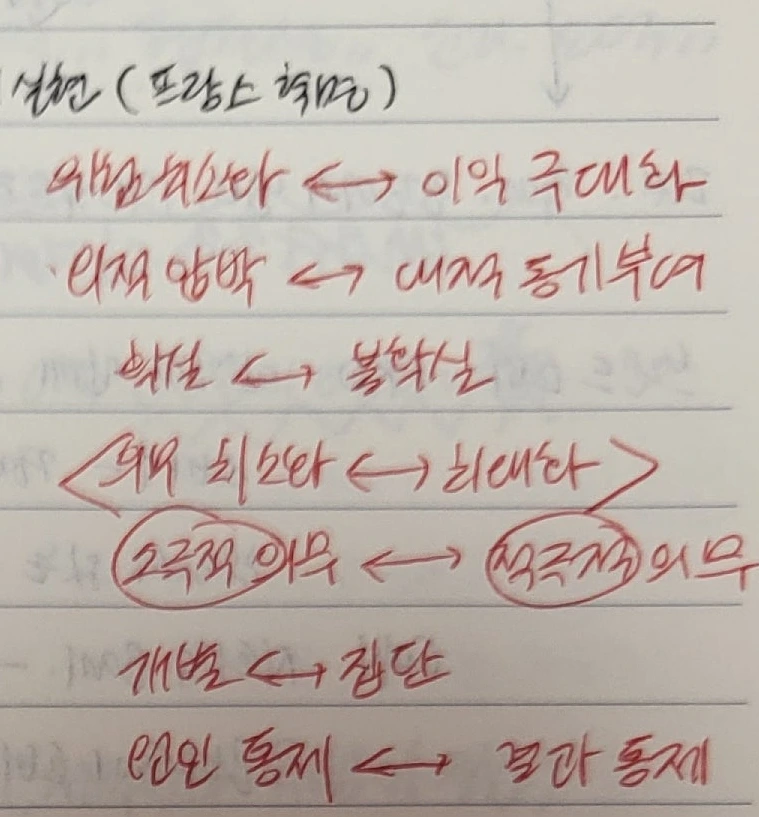 실현 (프랑스 혁명)
위험 최소화 ↔ 이익 극대화
외적 압박 ↔ 내적 동기부여
확실 ↔ 불확실
<의무 최소화 ↔ 최대화>
소극적 의무 ↔ 적극적 의무
개별 ↔ 집단
원인 통제 ↔ 결과 통제